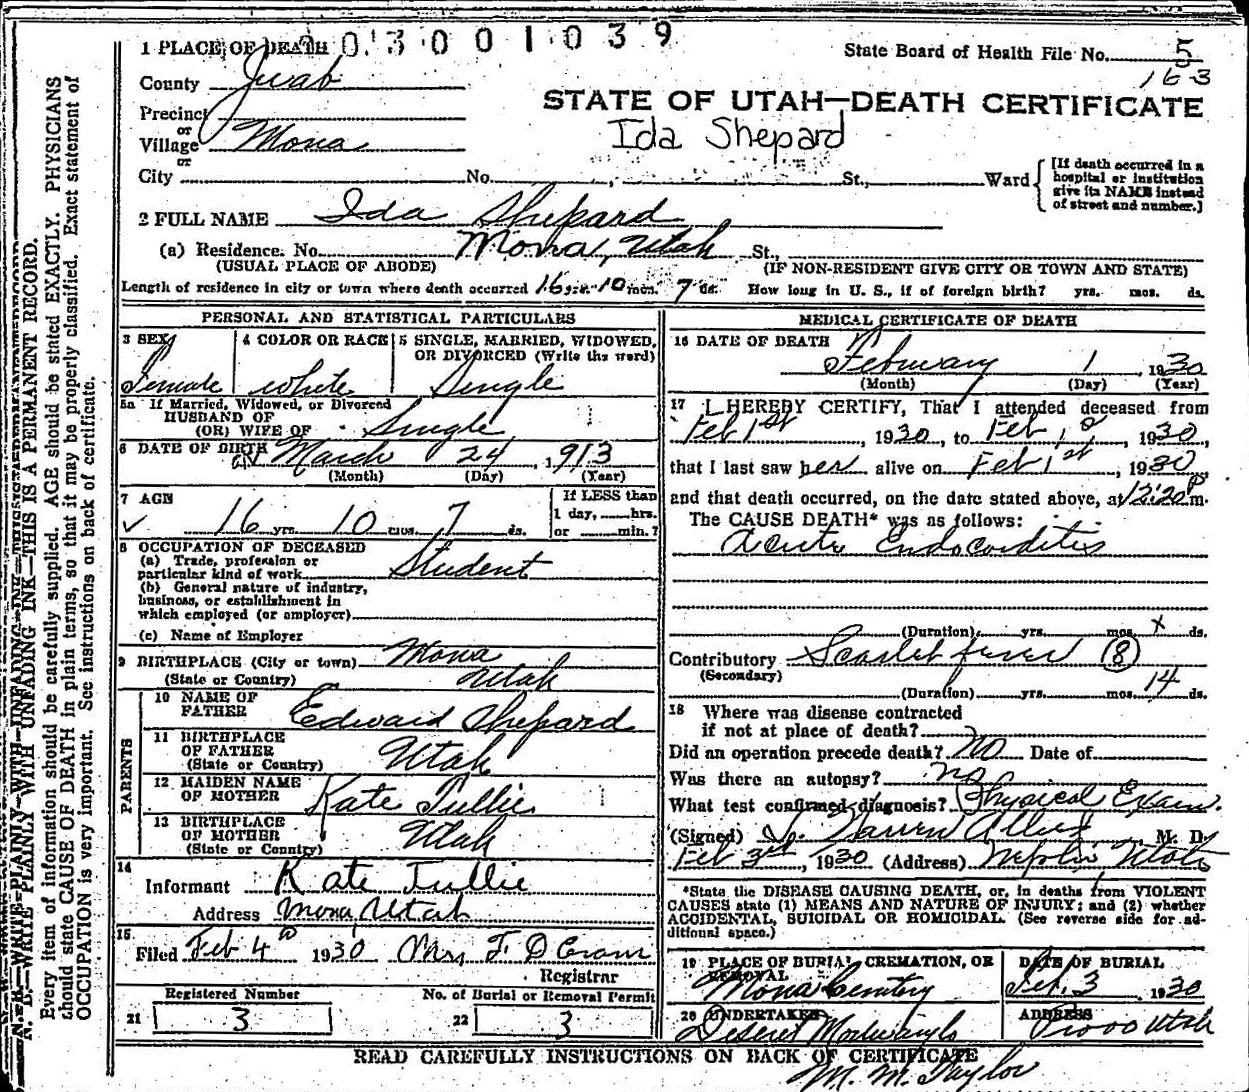 1 PLACE OF DEATH 0 3 0 0 1 0 3 9
State Board of Health File No. 5
163
County Juab
STATE OF UTAH—DEATH CERTIFICATE
Precinct
or
Village Mona
Ida Shepard
or
City No. St., Ward
[If death occurred in a
hospital or institution
give its NAME instead
of street and number.]
2 FULL NAME Ida Shepard
(a) Residence. No. Mona, Utah St.,
(USUAL PLACE OF ABODE) (IF NON-RESIDENT GIVE CITY OR TOWN AND STATE)
Length of residence in city or town where death occurred 16 yrs. 10 mos. 7 ds. How long in U. S., if of foreign birth? yrs. mos. ds.
PERSONAL AND STATISTICAL PARTICULARS
3 SEX
Female
4 COLOR OR RACE
white
5 SINGLE, MARRIED, WIDOWED,
OR DIVORCED (Write the word)
Single
5a If Married, Widowed, or Divorced
HUSBAND OF
(OR) WIFE OF Single
6 DATE OF BIRTH March 24, 1913
(Month) (Day) (Year)
7 AGE
16 yrs. 10 mos. 7 ds.
If LESS than
1 day, hrs.
or min.?
8 OCCUPATION OF DECEASED
(a) Trade, profession or
particular kind of work Student
(b) General nature of industry,
business, or establishment in
which employed (or employer)
(c) Name of Employer
9 BIRTHPLACE (City or town) Mona
(State or Country) Utah
PARENTS
10 NAME OF
FATHER Edward Shepard
11 BIRTHPLACE
OF FATHER
(State or Country) Utah
12 MAIDEN NAME
OF MOTHER Kate Tullie
13 BIRTHPLACE
OF MOTHER
(State or Country) Utah
14
Informant Kate Tullie
Address Mona, Utah
15
Filed Feb 4th 1930 Mrs F D
Registrar
Registered Number
21 3
No. of Burial or Removal Permit
22 3
MEDICAL CERTIFICATE OF DEATH
16 DATE OF DEATH
February 1, 1930
(Month) (Day) (Year)
17 I HEREBY CERTIFY, That I attended deceased from
Feb 1st, 1930, to Feb 1, 1930,
that I last saw her alive on Feb 1st, 1930,
and that death occurred, on the date stated above, at 12:20 P m.
The CAUSE DEATH* was as follows:
Acute Endocarditis
(Duration) yrs. mos. x ds.
Contributory Scarlet fever (8)
(Secondary)
(Duration) yrs. mos. 14 ds.
18 Where was disease contracted
if not at place of death?
Did an operation precede death? No Date of
Was there an autopsy? no
What test confirmed diagnosis? Physical Exam.
(Signed) M. D.
Feb 3rd, 1930 (Address) Nephi, Utah
*State the DISEASE CAUSING DEATH, or, in deaths from VIOLENT
CAUSES state (1) MEANS AND NATURE OF INJURY; and (2) whether
ACCIDENTAL, SUICIDAL OR HOMICIDAL. (See reverse side for ad-
ditional space.)
19 PLACE OF BURIAL, CREMATION, OR
REMOVAL
Mona Cemetery
DATE OF BURIAL
Feb. 3, 1930
20 UNDERTAKER
Deseret
ADDRESS
Provo Utah
READ CAREFULLY INSTRUCTIONS ON BACK OF CERTIFICATE
M. M. Taylor
N. B.—WRITE PLAINLY WITH UNFADING INK—THIS IS A PERMANENT RECORD.
Every item of information should be carefully supplied. AGE should be stated EXACTLY. PHYSICIANS
should state CAUSE OF DEATH in plain terms, so that it may be properly classified. Exact statement of
OCCUPATION is very important. See instructions on back of certificate.